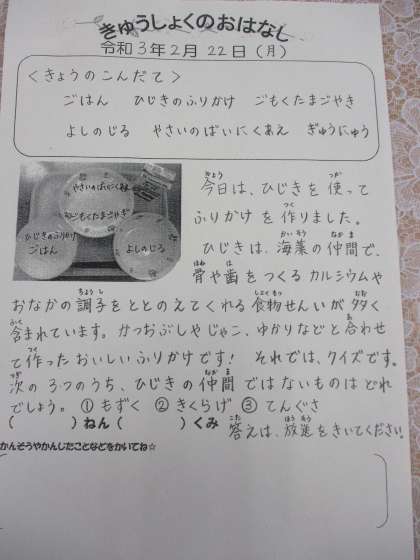 きゅうしょくのおはなし
令和3年2月 22日(月)
<きょうのこんだて>
ごはん ひじきのふりかけ ごもくたまごやき
よしのじる やさいのばいにくあえ ぎゅうにゅう
やさいのばいにくあえ
ごもくたまごやき
ひじきのふりかけ
ごはん
よしのじる
今日は、ひじきを使って
ふりかけを作りました。
ひじきは、海藻の仲間で、
骨や歯をつくるカルシウムや
おなかの調子をととのえてくれる食物せんいが多く
含まれています。かつおぶしやじゃこ、ゆかりなどと合わせ
て作ったおいしいふりかけです! それでは、クイズです。
次の3つのうち、ひじきの仲間ではないものはどれ
でしょう。 ①もずく ②きくらげ ③てんぐさ
( )ねん( )くみ 答えは、放送をきいてください!
かんそうやかんじたことなどをかいてね☆